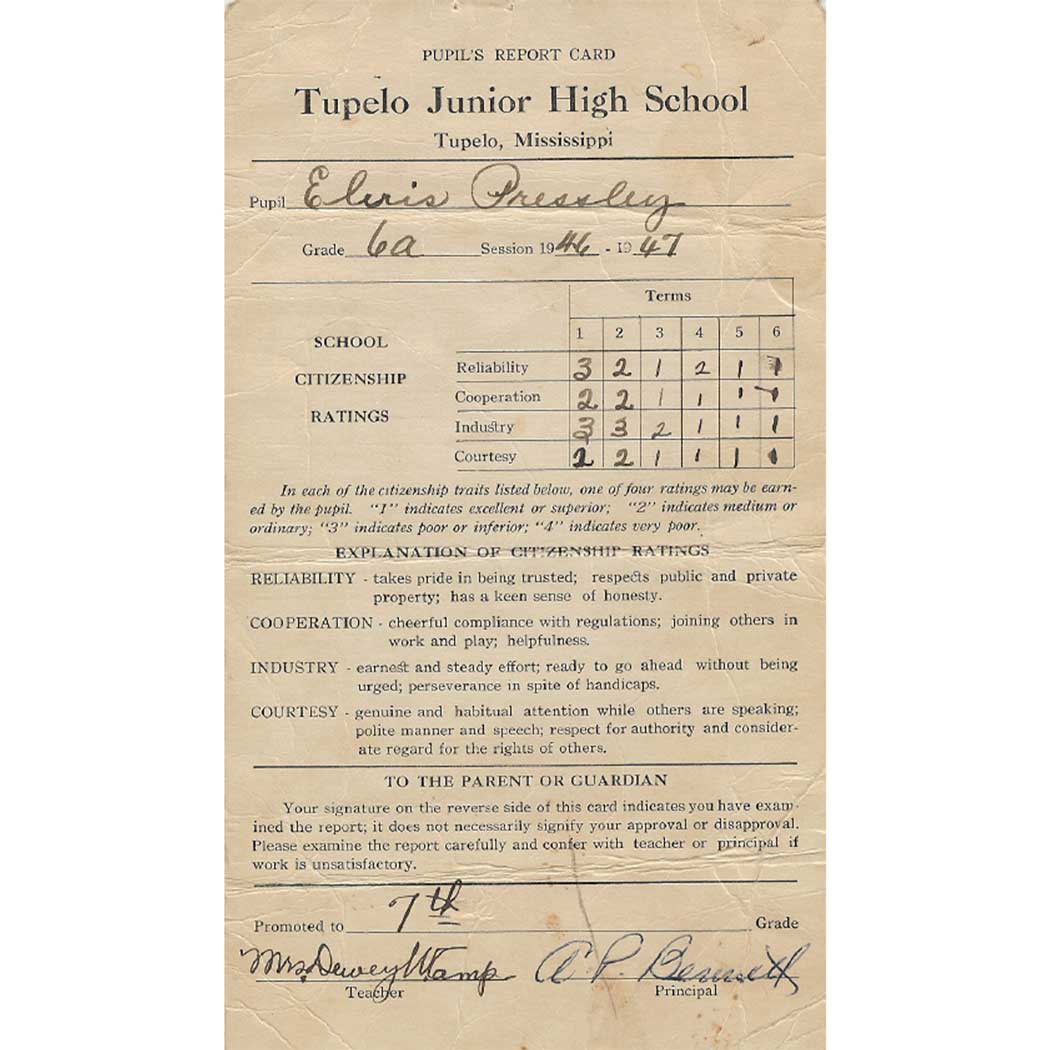 PUPIL'S REPORT CARD
Tupelo Junior High School
Tupelo, Mississippi
Pupil Elvis Pressley
Grade 6a Session 1946 - 1947
Terms
1 2 3 4 5 6
SCHOOL
CITIZENSHIP
RATINGS
Reliability 3 2 1 2 1 1
Cooperation 2 2 1 1 1 1
Industry 3 3 2 1 1 1
Courtesy 2 2 1 1 1 1
In each of the citizenship traits listed below, one of four ratings may be earn-
ed by the pupil. "1" indicates excellent or superior; "2" indicates medium or
ordinary; "3" indicates poor or inferior; "4" indicates very poor.
EXPLANATION OF CITIZENSHIP RATINGS
RELIABILITY - takes pride in being trusted; respects public and private
property; has a keen sense of honesty.
COOPERATION - cheerful compliance with regulations; joining others in
work and play; helpfulness.
INDUSTRY - earnest and steady effort; ready to go ahead without being
urged; perseverance in spite of handicaps.
COURTESY - genuine and habitual attention while others are speaking;
polite manner and speech; respect for authority and consider-
ate regard for the rights of others.
TO THE PARENT OR GUARDIAN
Your signature on the reverse side of this card indicates you have exam-
ined the report; it does not necessarily signify your approval or disapproval.
Please examine the report carefully and confer with teacher or principal if
work is unsatisfactory.
Promoted to 7th Grade
Mrs. Dewey A. P. Bennett
Teacher Principal